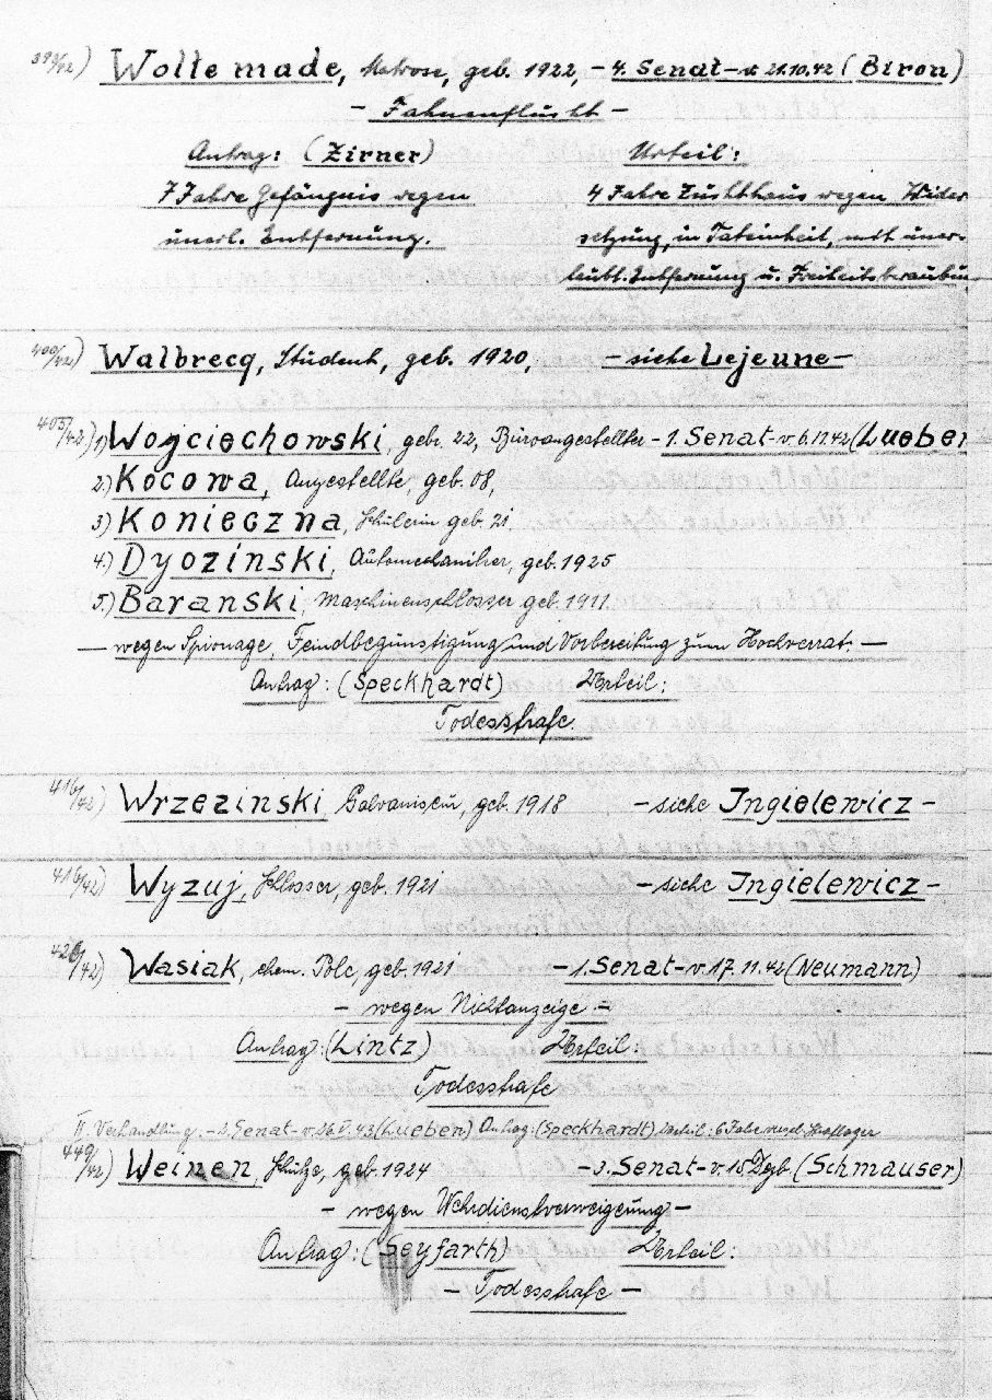 399/42) Woltemade, Matrose, geb. 1922, – 4. Senat – v. 21.10.42 (Biron)
– Fahnenflucht –
Antrag: (Zirner) Urteil:
7 Jahre Gefängnis wegen 4 Jahre Zuchthaus wegen Wider
unerl. Entfernung. setzung, in Tateinheit, mit uner-
laubt. Entfernung u. Freiheitsberaubun
400/42) Walbrecq, Student, geb. 1920, – siehe Lejeune –
405/42) 1) Wojciechowski, geb. 22, Büroangestellter – 1. Senat – v. 6.11.42 (Lueben
2.) Kocowa, Angestellte, geb. 08,
3) Konieczna, Schülerin geb. 21
4.) Dyozinski, Automechaniker, geb. 1925
5.) Baranski, Maschinenschlosser geb. 1911
– wegen Spionage, Feindbegünstigung und Vorbereitung zum Hochverrat. –
Antrag: (Speckhardt) Urteil:
Todesstrafe.
416/42) Wrzezinski, Galvaniseur, geb. 1918 – siehe Jngielewicz –
416/42) Wyzuj, Schlosser, geb. 1921 – siehe Jngielewicz –
426/42) Wasiak, ehem. Pole, geb. 1921 – 1. Senat – v. 17.11.42 (Neumann)
– wegen Nichtanzeige –
Antrag: (Lintz) Urteil:
Todesstrafe
II. Verhandlung: – 2. Senat – v. 26.V.43 (Lueben) Antrag: (Speckhardt) Urteil: 6 Jahre versch. Straflager
449/42) Weinen, Schütze, geb. 1924 – 3. Senat – v. 15. Dzb. (Schmauser)
– wegen Wehrdienstverweigerung –
Antrag: (Seyfarth) Urteil:
– Todesstrafe –